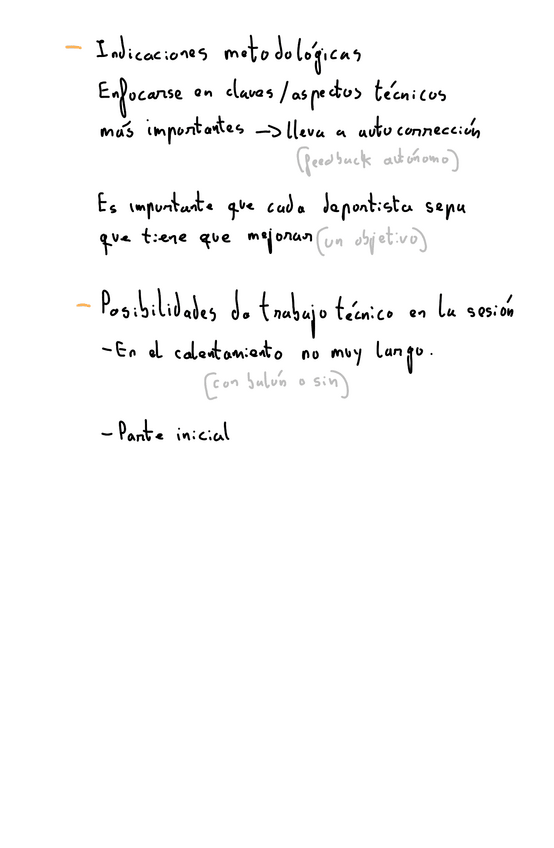 — Indicaciones metodológicas
Enfocarse en claves/aspectos técnicos
más importantes → lleva a autocorrección
(feedback autónomo)
Es importante que cada deportista sepa
que tiene que mejorar (un objetivo)
— Posibilidades de trabajo técnico en la sesión
- En el calentamiento no muy largo.
(con balón o sin)
- Parte inicial